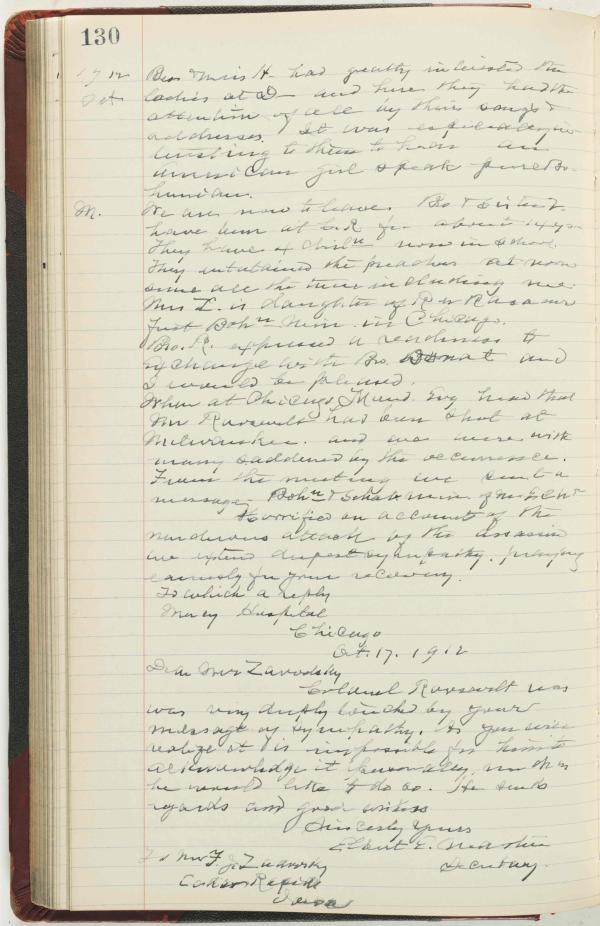 130
1912 Bro & Miss H. had greatly interested the
Oct ladies at D and here they had the
attention of all by their songs &
addresses. It was especially in
teresting to them to hear an
american girl speak pure Bo-
hemian.
M. We are now to leave. Bro & Sister
have been at C.R for about
They have 4 childn now in school.
They entertained the preacher at noon
some all the time including me.
Mrs Z. is daughter of Rev
first Bohn Min. in Chicago.
Bro. P. expressed a readiness to
exchange with Bro. and
I would be pleased.
When at Chicago Mond. Evg heard that
Mr Roosevelt had been shot at
Milwaukee. and we were with
many saddened by the occurrence.
From the meeting we sent a
message. Bohn & Min. of
Horrified on account of the
murderous attack by the assassin
we extend deepest sympathy. praying
earnestly for your recovery.
To which a reply
Mercy Hospital
Chicago
Oct. 17. 1912
Dear Mr Zavodsky
Colonel Roosevelt was
was very deeply touched by your
message of sympathy. As you will
realize it is impossible for him to
acknowledge it personally, much as
he would like to do so. He sends
regards and good wishes
Sincerely Yours
Elbert E.
Secretary.
To Mr F. J. Zavodsky
Cedar Rapids
Iowa